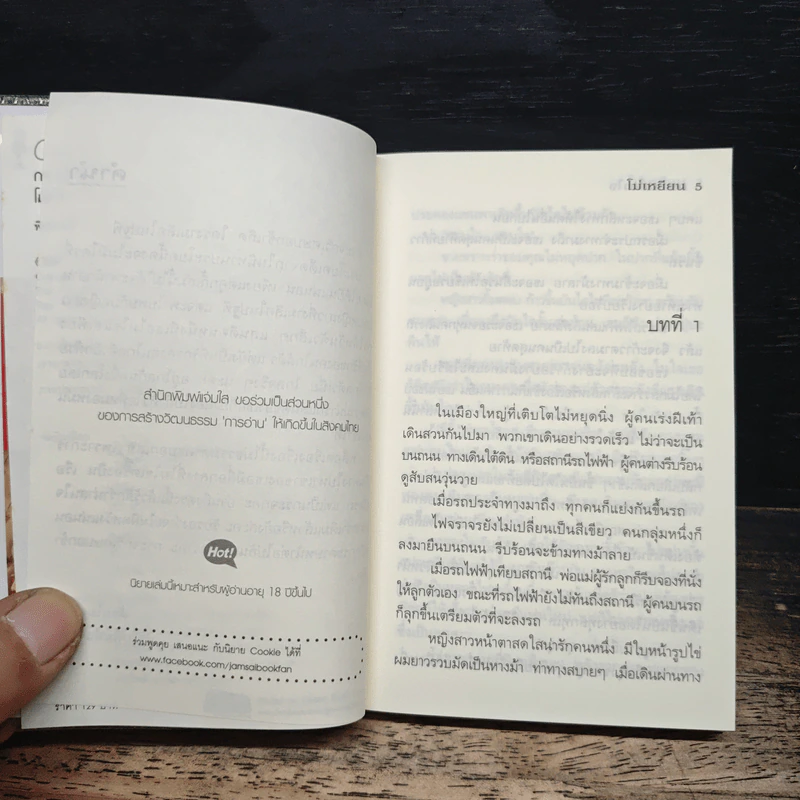 สำนักพิมพ์แจ่มใส ขอร่วมเป็นส่วนหนึ่ง
ของการสร้างวัฒนธรรม 'การอ่าน' ให้เกิดขึ้นในสังคมไทย
Hot!
นิยายเล่มนี้เหมาะสำหรับผู้อ่านอายุ 18 ปีขึ้นไป
ร่วมพูดคุย เสนอแนะ กับนิยาย Cookie ได้ที่
www.facebook.com/jamsaibookfan
โม่เหยียน 5
บทที่ 1
ในเมืองใหญ่ที่เติบโตไม่หยุดนิ่ง ผู้คนเร่งฝีเท้า
เดินสวนกันไปมา พวกเขาเดินอย่างรวดเร็ว ไม่ว่าจะเป็น
บนถนน ทางเดินใต้ดิน หรือสถานีรถไฟฟ้า ผู้คนต่างรีบร้อน
ดูสับสนวุ่นวาย
เมื่อรถประจำทางมาถึง ทุกคนก็แย่งกันขึ้นรถ
ไฟจราจรยังไม่เปลี่ยนเป็นสีเขียว คนกลุ่มหนึ่งก็
ลงมายืนบนถนน รีบร้อนจะข้ามทางม้าลาย
เมื่อรถไฟฟ้าเทียบสถานี พ่อแม่ผู้รักลูกก็รีบจองที่นั่ง
ให้ลูกตัวเอง ขณะที่รถไฟฟ้ายังไม่ทันถึงสถานี ผู้คนบนรถ
ก็ลุกขึ้นเตรียมตัวที่จะลงรถ
หญิงสาวหน้าตาสดใสน่ารักคนหนึ่ง มีใบหน้ารูปไข่
ผมยาวรวบมัดเป็นหางม้า ท่าทางสบายๆ เมื่อเดินผ่านทาง